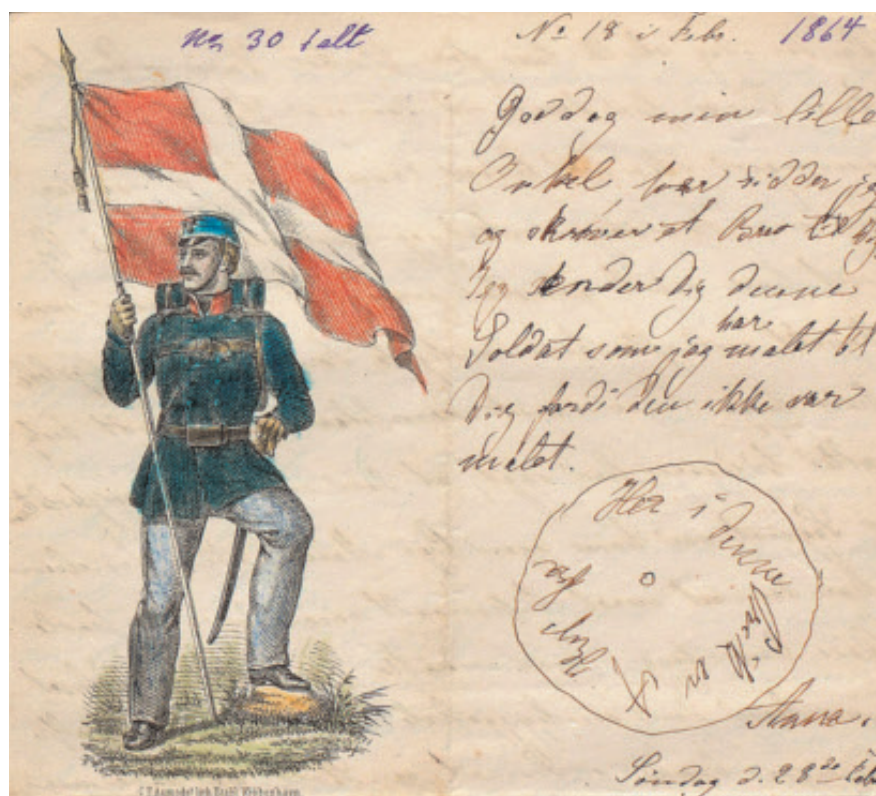 No 30 i alt
No 18 i Feb. 1864
Goddag min lille
Onkel her sidder jeg
og skriver et Brev til
Jeg sender Dig denne
Soldat som jeg har malet til
Dig fordi den ikke var
malet.
Her i denne Cirkel er et Kys fra
Anna.
Søndag d. 28de Feb